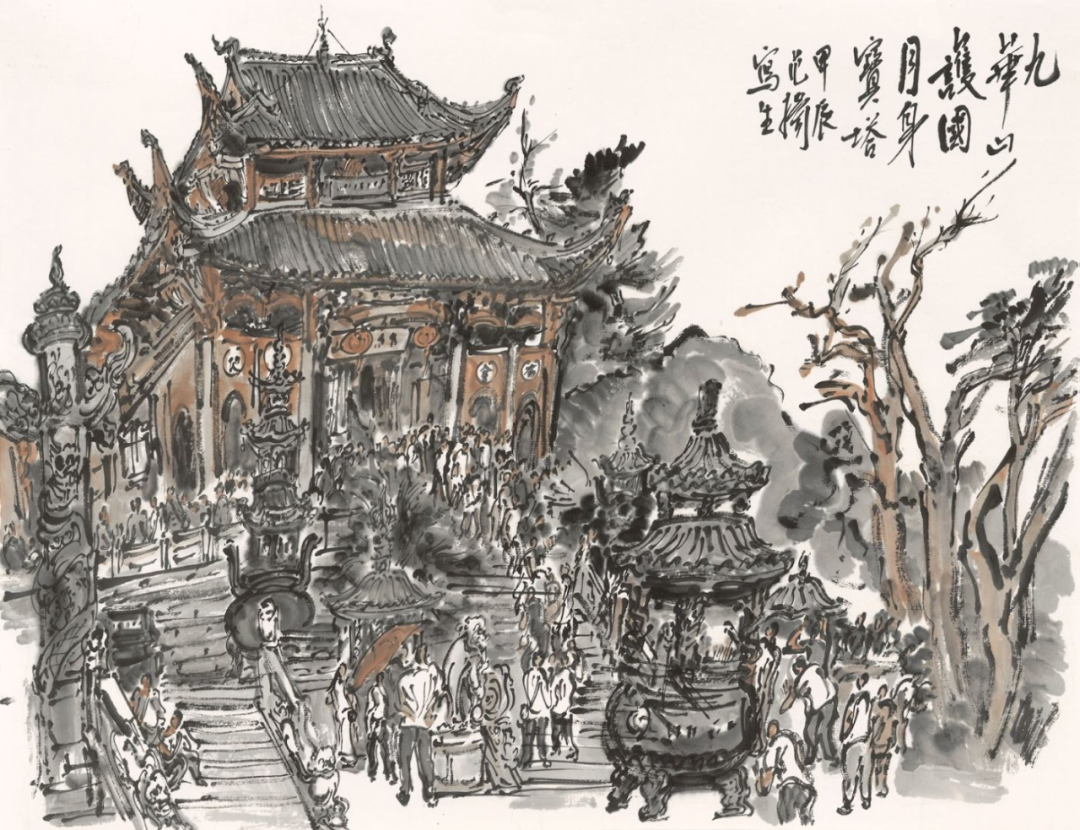 九
華山
護國
月身
寶塔
甲辰
范揚
寫生